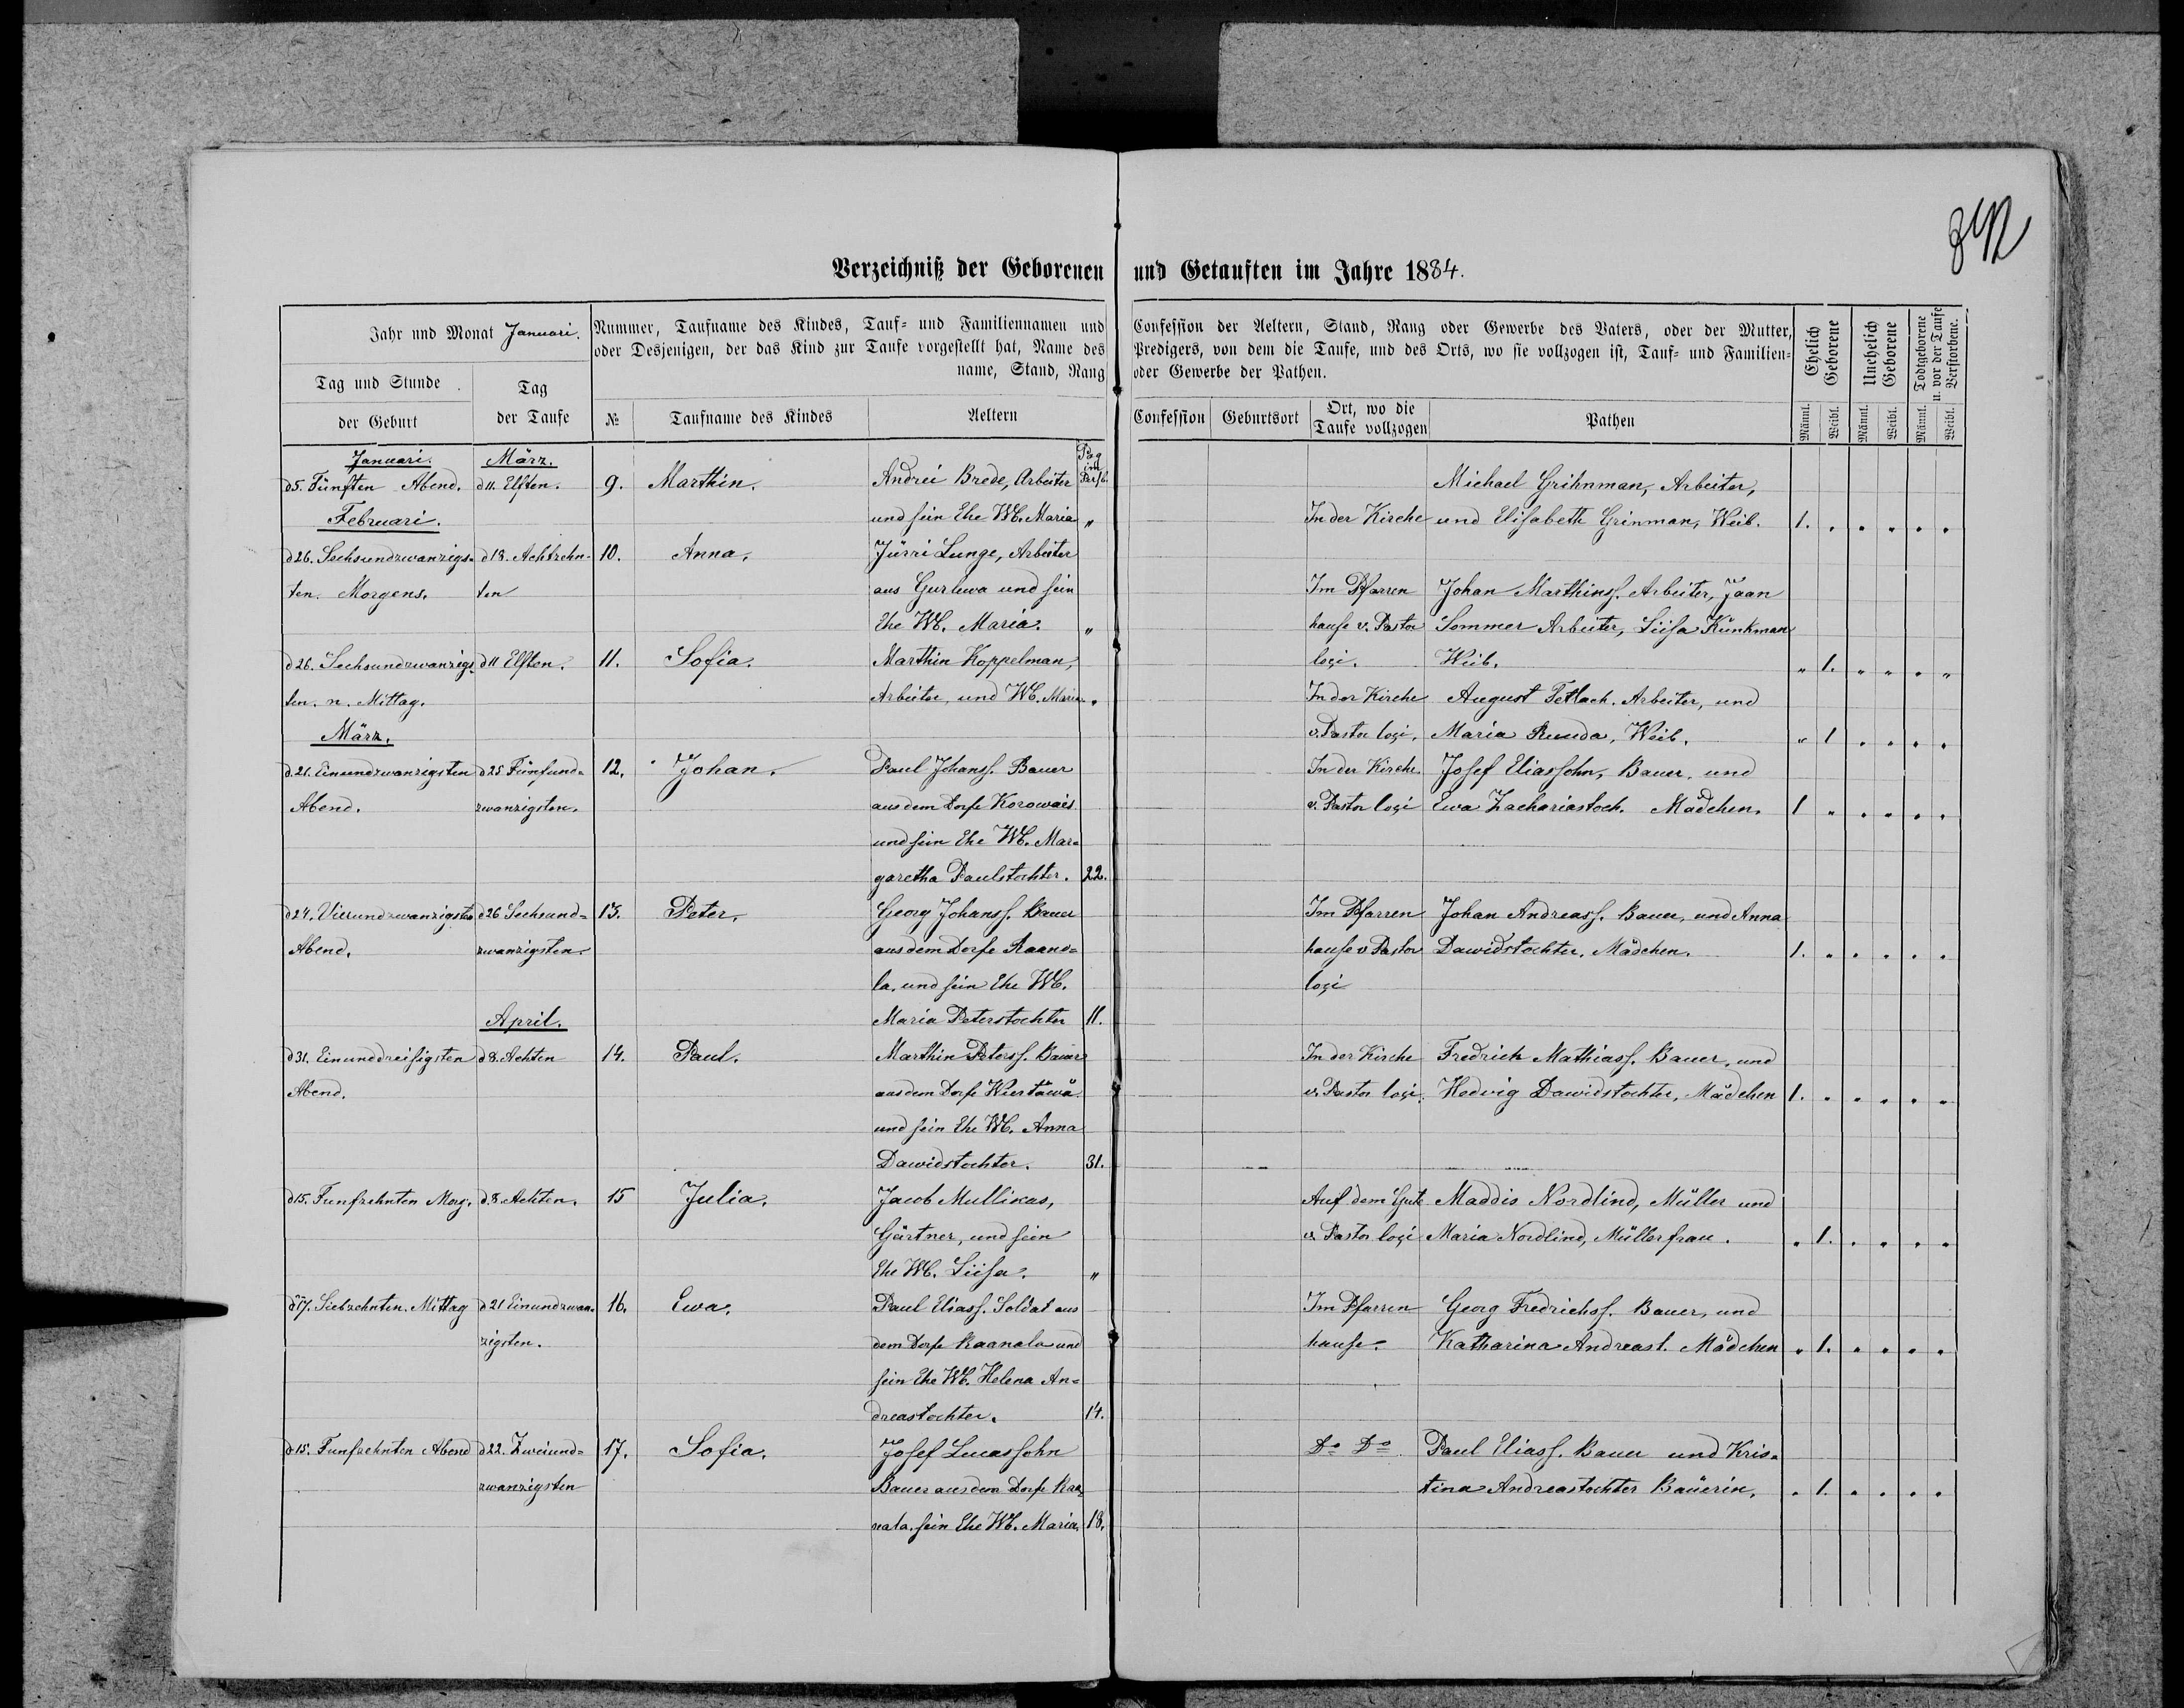 Verzeichniß der Geborenen und Getauften im Jahre 1884.
Jahr und Monat Januari.
Tag und Stunde der Geburt
Tag der Taufe
Nummer, Taufname des Kindes, Tauf- und Familiennamen und
oder Desjenigen, der das Kind zur Taufe vorgestellt hat, Name des
name, Stand, Rang
№
Taufname des Kindes
Aeltern
Confession der Aeltern, Stand, Rang oder Gewerbe des Vaters, oder der Mutter,
Predigers, von dem die Taufe, und des Orts, wo sie vollzogen ist, Tauf- und Familien-
oder Gewerbe der Pathen.
Confession
Geburtsort
Ort, wo die
Taufe vollzogen
Pathen
Ehelich Geborene
Unehelich Geborene
Todtgeborene u. vor der Taufe Verstorbene.
Männl. Weibl. Männl. Weibl. Männl. Weibl.
Januari. März. Pag
im
d5. Fünften Abend. d11. Elften. 9. Marthin. Andrei Brede, Arbeiter Michael Grihnman, Arbeiter,
Februari. und sein Ehe Wb. Maria " In der Kirche und Elisabeth Grinman, Weib. 1. . . . . .
d26. Sechsundzwanzigs- d18. Achtzehn- 10. Anna. Jürri Lunge, Arbeiter
ten. Morgens. ten aus Gurlewa und sein Im Pfarren Johan Marthins. Arbeiter, Jaan
Ehe Wb. Maria. " hause v. Pastor Sommer Arbeiter, Liisa Künkman
d26. Sechsundzwanzigs- d11 Elften. 11. Sofia. Marthin Koppelman, loci. Weib. " 1. " " " "
ten. n. Mittag. Arbeiter, und Wb. Maria " In der Kirche August Tetlach. Arbeiter, und
März. v. Pastor loci. Maria Runda, Weib. " 1 . . . .
d. 21. Einundzwanzigsten d25. Fünfund- 12. Johan. Paul Johanss. Bauer In der Kirche Josef Eliassohn, Bauer. und
Abend. zwanzigsten. aus dem Dorfe Korowais v. Pastor loci Ewa Zachariastoch. Mädchen. 1 " . . . .
und sein Ehe Wb. Mar-
garetha Paulstochter. 22.
d24. Vierundzwanzigsten d26 Sechsund- 13. Peter. Georg Johanss. Bauer Im Pfarren Johan Andreass. Bauer, und Anna
Abend. zwanzigsten. aus dem Dorfe Raano- hause v Pastor Dawidstochter. Mädchen. 1. . . . . .
la. und sein Ehe Wb. loci
April. Maria Peterstochter 11.
d31. Einunddreisigsten d8. Achten 14. Paul. Marthin Peterss. Bauer In der Kirche Fredrich Mathiass. Bauer, und
Abend. aus dem Dorfe Wiertäwä v. Pastor loci. Hedvig Dawidstochter, Mädchen 1. . . . . .
und sein Ehe Wb. Anna
Dawidstochter. 31.
d15. Funfzehnten Morg. d. 8. Achten. 15 Julia. Jacob Mullikas, Auf dem Gute Maddis Nordlind, Müller und
Gärtner, und sein v. Pastor loci Maria Nordlind, Müllerfrau. . 1. . . . .
Ehe Wb. Liisa. "
d17. Siebzehnten. Mittag d21 Einundzwan- 16. Ewa. Paul Eliass. Soldat aus Im Pfarren Georg Fredrichss. Bauer, und
zigsten. dem Dorfe Raanola und hause. Katharina Andreast. Mädchen . 1. . . . .
sein Ehe Wb. Helena An-
dreastochter. 14.
d15. Funfzehnten Abend d22. Zweiund- 17. Sofia. Josef Lucassohn Do Do Paul Eliass. Bauer und Kris-
zwanzigsten Bauer aus dem Dorfe Raa- tina Andreastochter Bäuerin. . 1. . . . .
nala. sein Ehe Wb. Maria. 18.